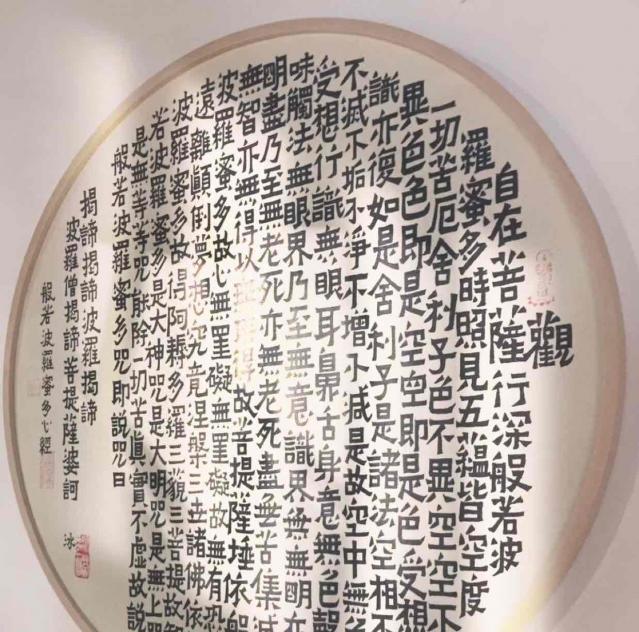 觀
自在菩薩行深般若波
羅蜜多時照見五蘊皆空度
一切苦厄舍利子色不異空空不
異色色即是空空即是色受想
識亦復如是舍利子是諸法空相不
不滅不垢不淨不增不減是故空中無
受想行識無眼耳鼻舌身意無色聲
味觸法無眼界乃至無意識界無無明亦
明盡乃至無老死亦無老死盡無苦集滅
無智亦無得以無所得故菩提薩埵依般
波羅蜜多故心無罣礙無罣礙故無有恐
遠離顛倒夢想究竟涅槃三世諸佛依
波羅蜜多故得阿耨多羅三藐三菩提故知
若波羅蜜多是大神咒是大明咒是無上咒
是無等等咒能除一切苦真實不虛故說
般若波羅蜜多咒即說咒曰
揭諦揭諦波羅揭諦
波羅僧揭諦菩提薩婆訶
般若波羅蜜多心經
冰